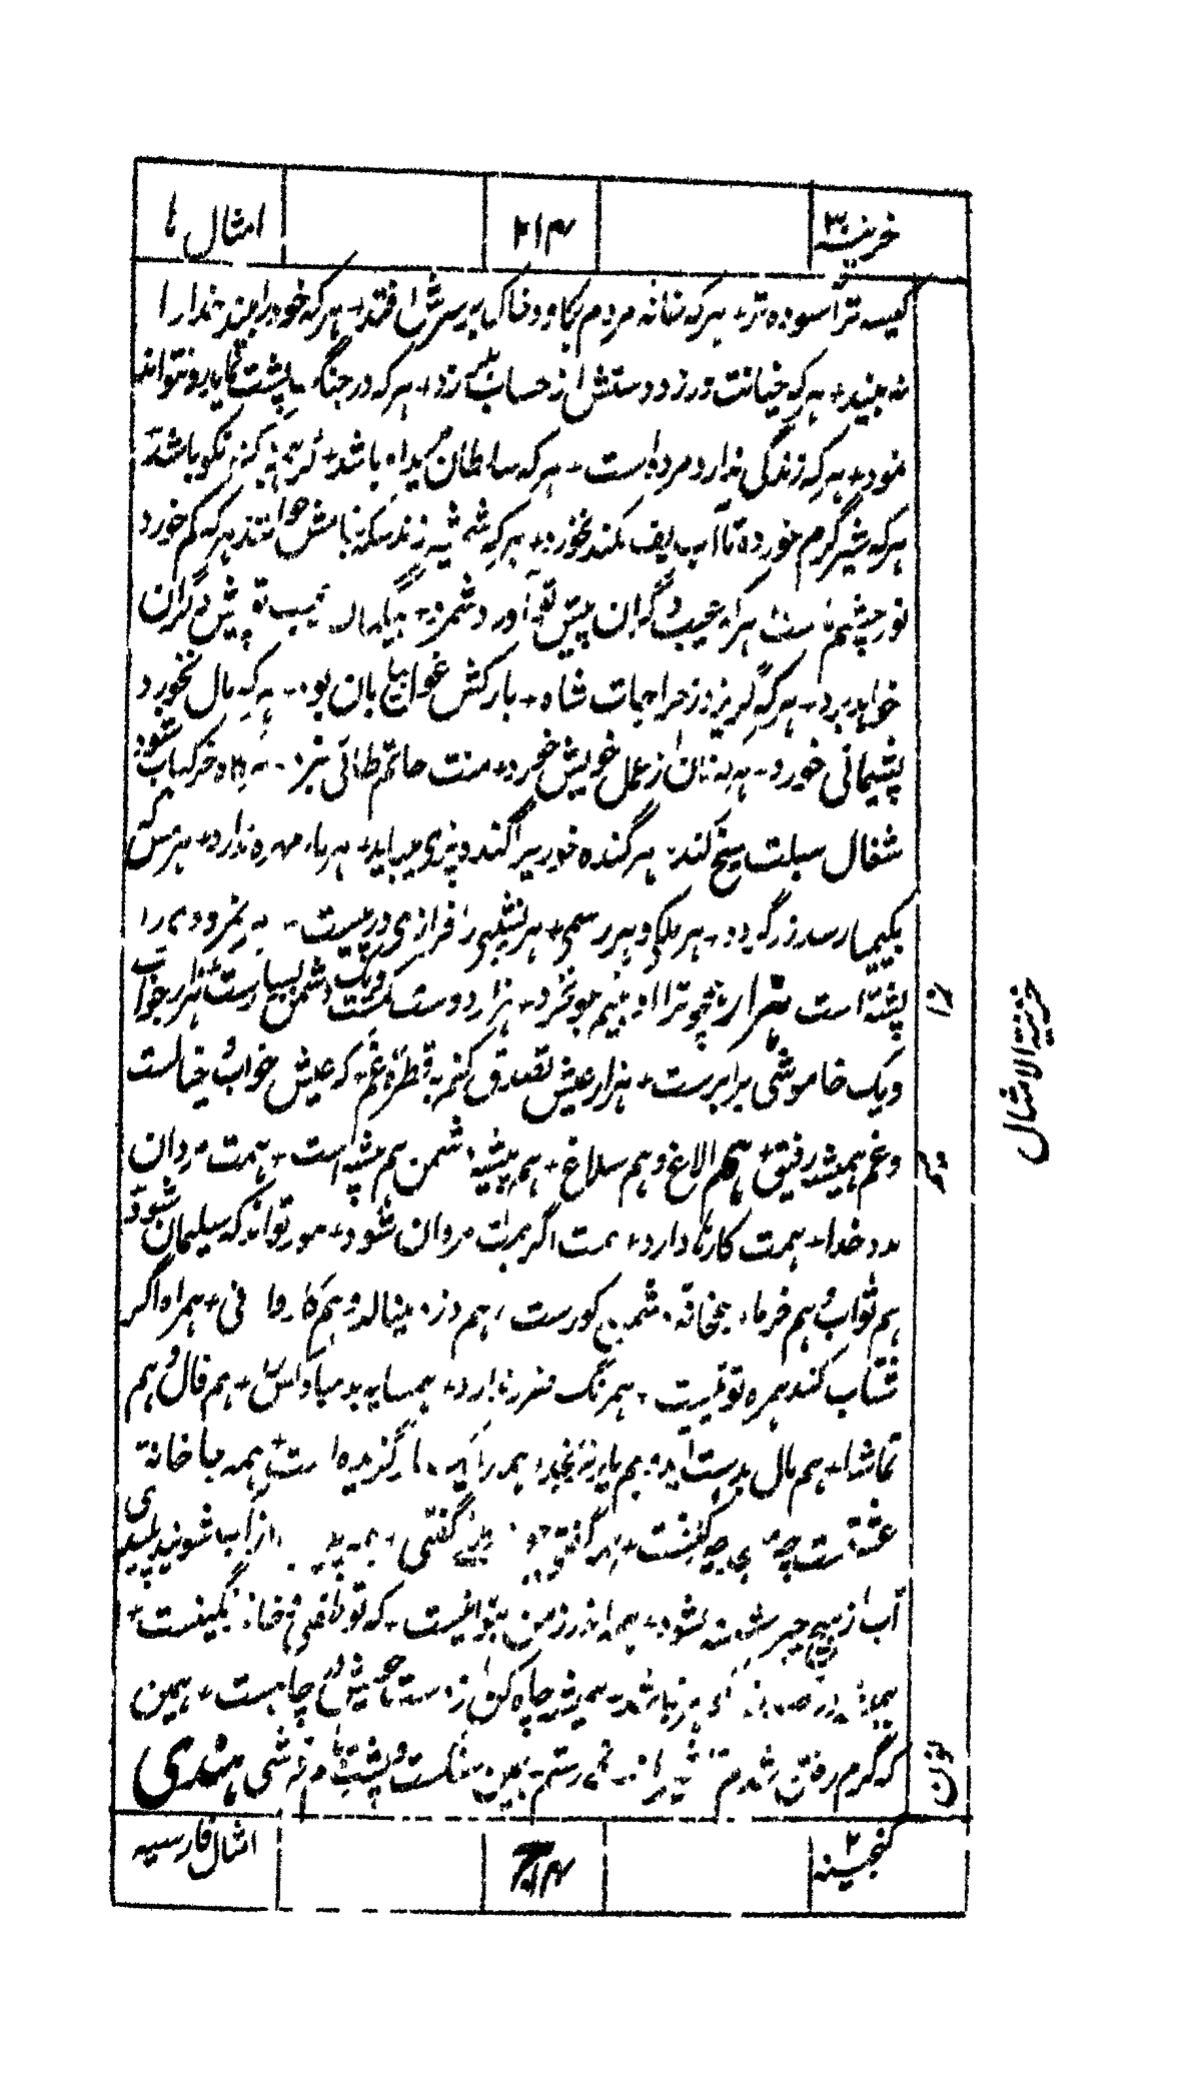 خزینه ۳ ۲۱۴ امثال ها
کیسه تر آسوده تر + هرکه خانه مردم بکاود خاک بر سرش افتد + هرکه خود را بیند خدا را
نه بیند + هرکه خیانت ورزد دستش از حساب بلرزد + هرکه در جنگ پشت نماید رو نتواند
نمود + هرکه زندگی ندارد مرده است + هرکه سلطان مرید او باشد + گر همه بد کند نکو باشد
هرکه شیر گرم خورده تا آب پف نکند نخورد + هرکه شمشیر زند سکه بنامش خوانند هرکه کم خورد
نور چشم ماست هرکه عیب دگران پیش تو آورد و شمرد + بیگمان عیب تو پیش دگران
خواهد برد + هرکه گریزد ز خراجات شاه + بارکش غول بیابان بود + هرکه مال نخورد
پشیمانی خورد + هرکه نان از عمل خویش خورد + منت حاتم طائی نبرد + هرگاه خرکباب شود
شغال سبلت سیخ کند + هر گنده خوریرا گنده پزی میباید + هر مار مهره ندارد + هر مس که
بکیمیا رسد زر گردد + هر ملکی و هر رسمی + هر نشیبی را فرازی در پیست + هر نمرودی را
پشه است هزار چو ترا او بنیم جو نخرد + هزار دوست کمست و یک دشمن بسیارست هزار جواب
و یک خاموشی برابرست + هزار عیش تصدق کنم به قطره غم + که عیش خواب و خیالست
و غم همیشه رفیق + هم الاغ و هم سلاغ + هم پیشه دشمن هم پیشه است + همت مردان
مدد خدا + همت کارها دارد + همت اگر همت مردان شود + مور تواند که سلیمان شود
هم ثواب و هم خرما + همخانه دشمن کورست + هم دزد مینالد و هم کاروانی + همراه اگر
شتاب کند همره تو نیست + همرنگ ضرر ندارد + همسایه بد مباد کس + هم فال و هم
تماشا + هم مال بدست آید و هم یار نرنجد + همه را مار گزیده است + همه جا خانه
عشقست چه مسجد چه کنشت + همه گفتی چو گفتی + همه چیز از آب شویند پلیدی
آب از هیچ چیز شسته نشود + همه اندرز من بتو اینست + که تو طفلی و خانه رنگینست +
همیشه در صدف گوهر نباشد + همیشه چاه کن از دست خویش در چاهست + همین
که گرم رفتن شدم شمشیر از رستم + همین سنگست و پشت پا م خوشی هندی
گنجینه ۲ ۲۱۴ امثال فارسیه
خزینة الامثال